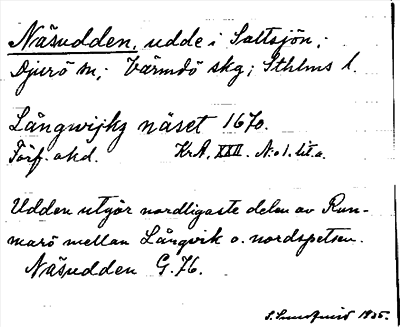 Näsudden, udde i Saltsjön;
Djurö sn; Värmdö skg; Sthlms l.
Långwijkz näset 1670.
Förf. okd. KrA. XXII. N:o 1. lit. a.
Udden utgör nordligaste delen av Run-
marö mellan Långvik o. nordspetsen.
Näsudden G. 76.
1935.